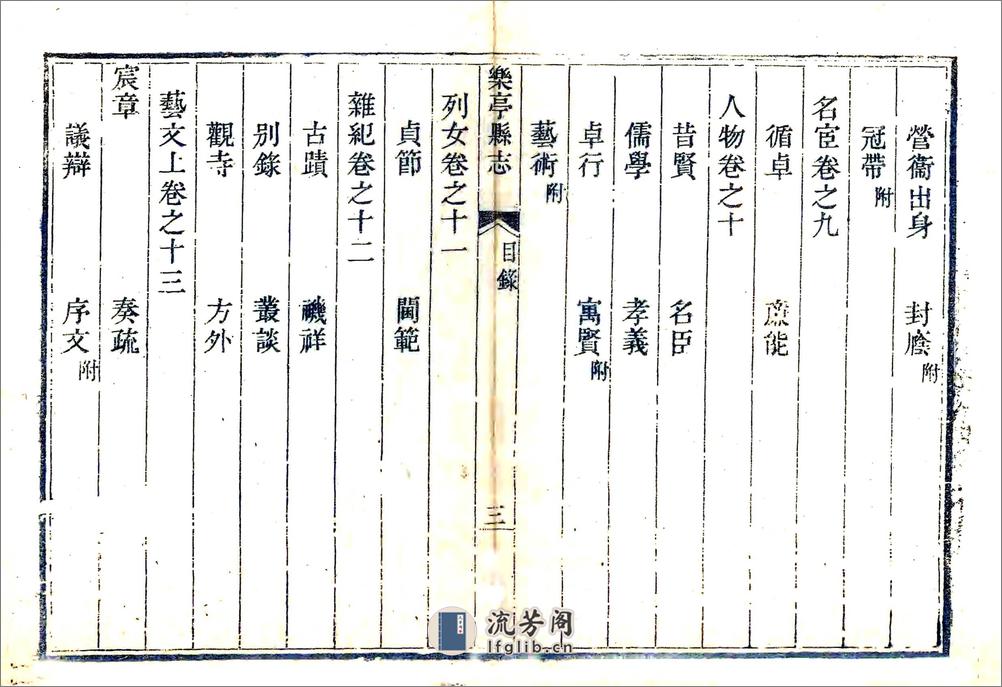 營衞出身　封廕附
冠帶附
名宦卷之九
循卓　廉能
人物卷之十
昔賢　名臣
儒學　孝義
卓行　寓賢附
藝術附
樂亭縣志　目錄　三
列女卷之十一
貞節　閫範
雜紀卷之十二
古蹟　禨祥
別錄　叢談
觀寺　方外
藝文上卷之十三
宸章　奏疏
議辯　序文附
流芳阁
lfglib.cn